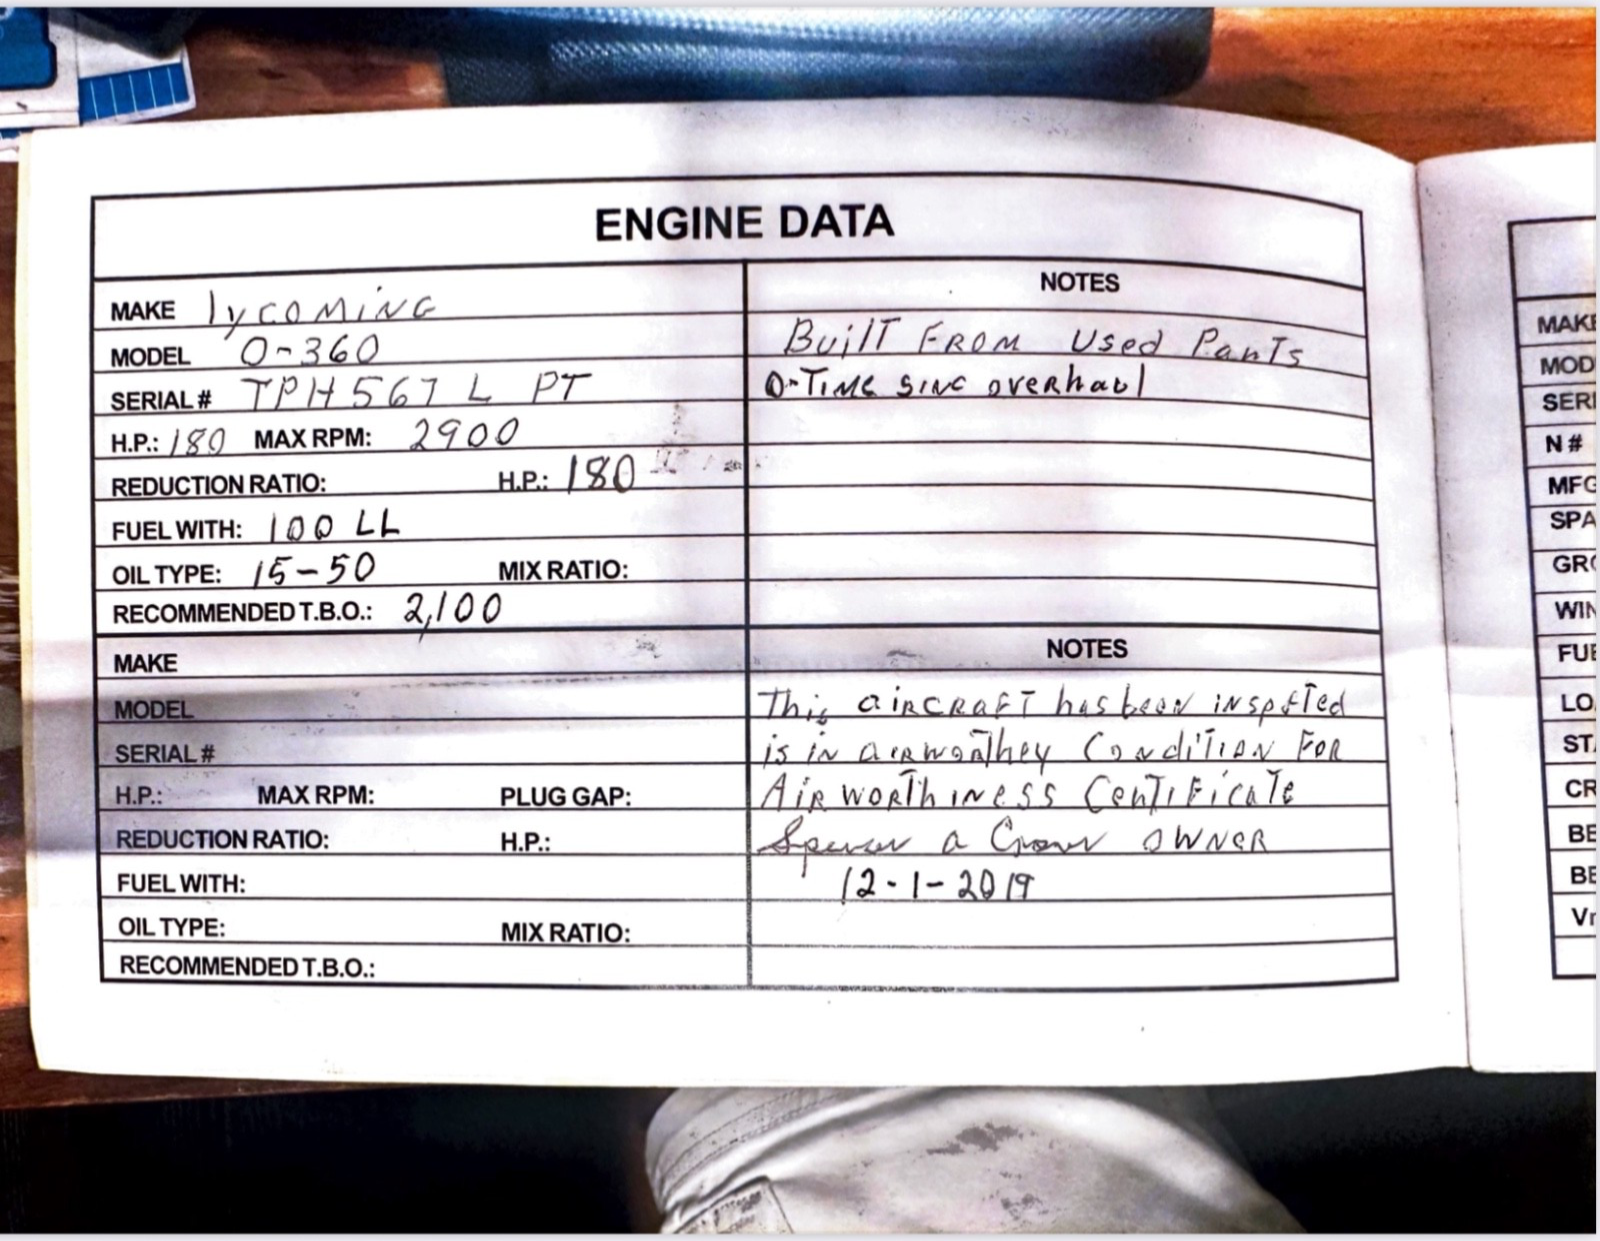 ENGINE DATA
MAKE lycoming
MODEL O-360
SERIAL# TPH567 L PT
H.P.: 180 MAX RPM: 2900
REDUCTION RATIO: H.P.: 180
FUEL WITH: 100 LL
OIL TYPE: 15-50 MIX RATIO:
RECOMMENDED T.B.O.: 2,100
NOTES
Built From Used Parts
0-Time sinc overhaul
MAKE
MODEL
SERIAL#
H.P.: MAX RPM: PLUG GAP:
REDUCTION RATIO: H.P.:
FUEL WITH:
OIL TYPE: MIX RATIO:
RECOMMENDED T.B.O.:
NOTES
This aircraft has been inspeted
is in airworthey Condition For
Airworthiness Certificate
a OWNER
12-1-2019
MAKE
MOD
SERI
N#
MFG
SPA
GRO
WIN
FUE
LO
ST
CR
BE
BE